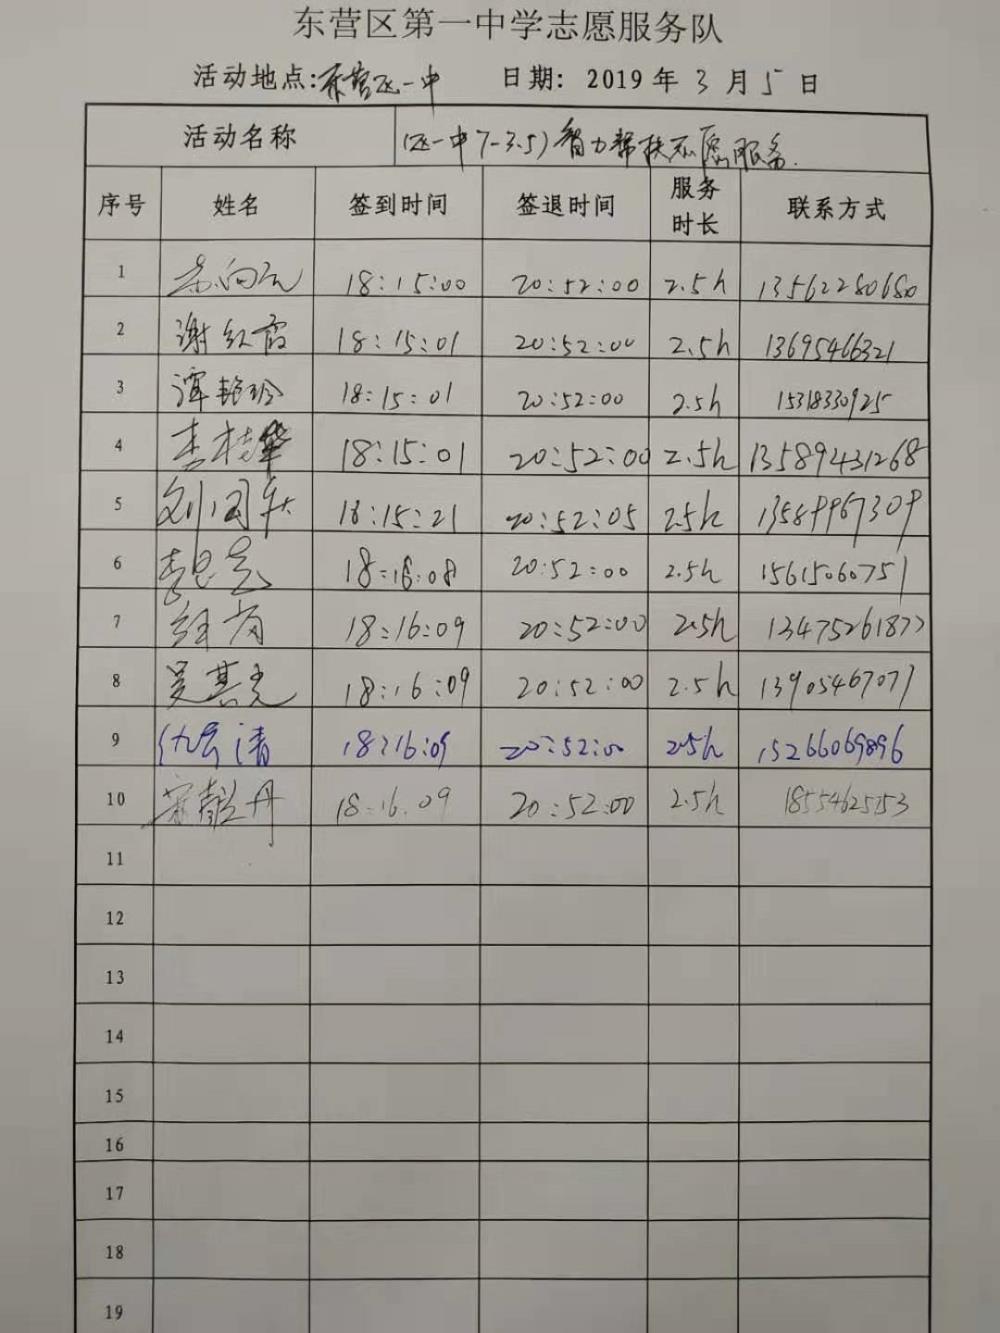 东营区第一中学志愿服务队
活动地点:东营区一中 日期: 2019年3月5日
活动名称 (区一中7-3.5)智力帮扶志愿服务.
序号 姓名 签到时间 签退时间 服务时长 联系方式
1 18:15:00 20:52:00 2.5h 13562280680
2 谢红霞 18:15:01 20:52:00 2.5h 13695466321
3 谭艳玲 18:15:01 20:52:00 2.5h 15318330925
4 李桂华 18:15:01 20:52:00 2.5h 13589431268
5 18:15:21 20:52:05 2.5h 13589967309
6 18:16:08 20:52:00 2.5h 15615060751
7 18:16:09 20:52:00 2.5h 13475261877
8 吴其光 18:16:09 20:52:00 2.5h 13905467071
9 18:16:09 20:52:00 2.5h 15266069896
10 宋靓丹 18:16.09 20:52:00 2.5h
11
12
13
14
15
16
17
18
19